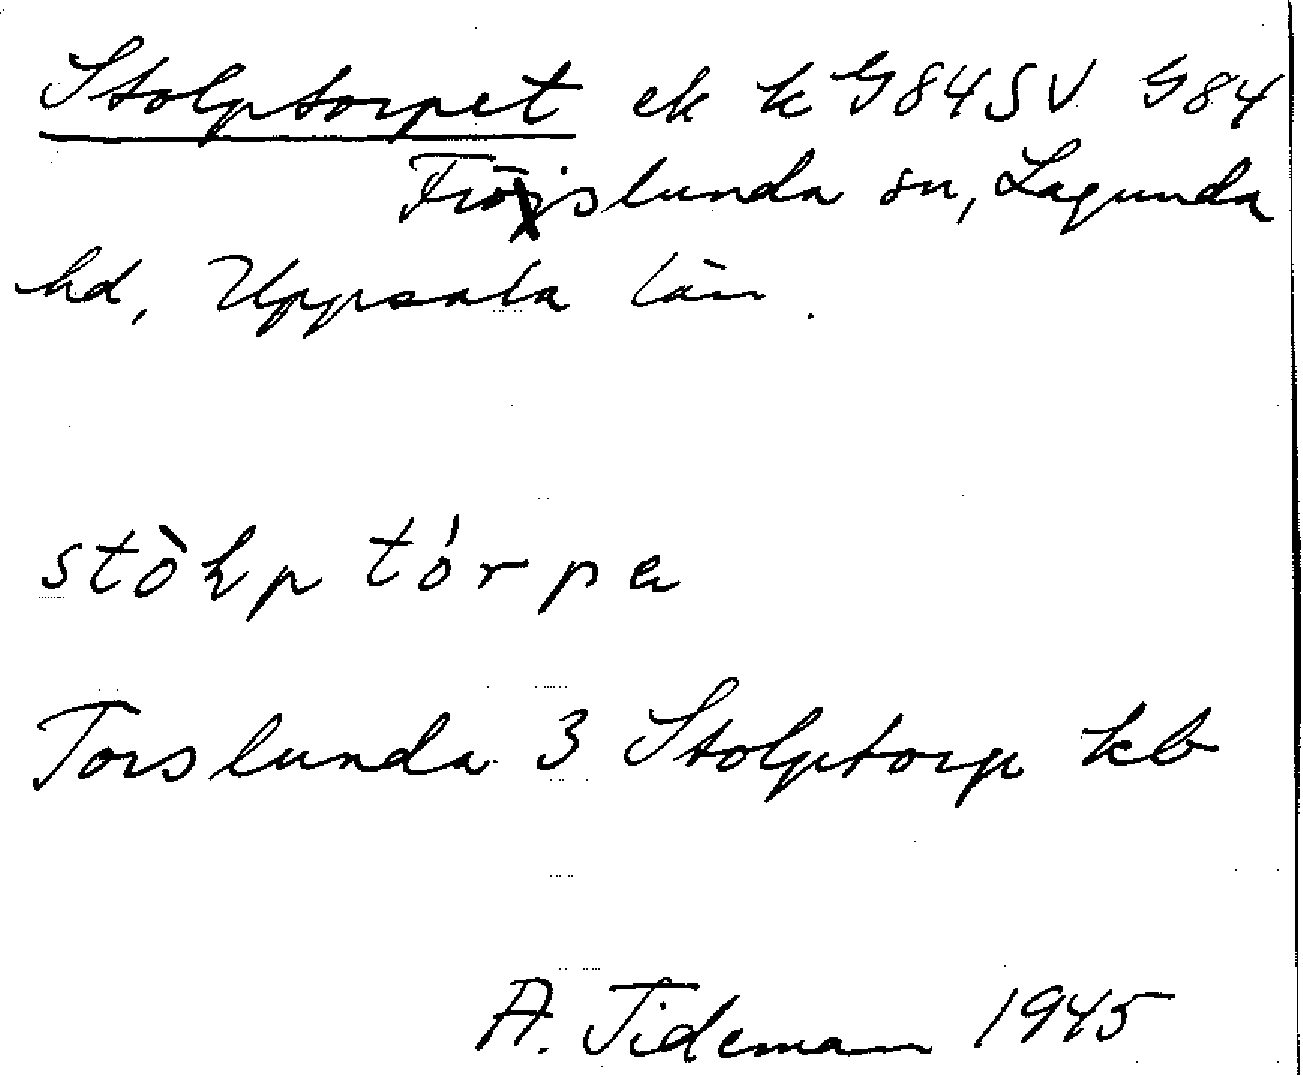 Stolptorpet ek k G84SV G84
Fröslunda sn, Lagunda
hd, Uppsala län.
tórpa
Torslunda 3 Stolptorp kb
A. Tideman 1945